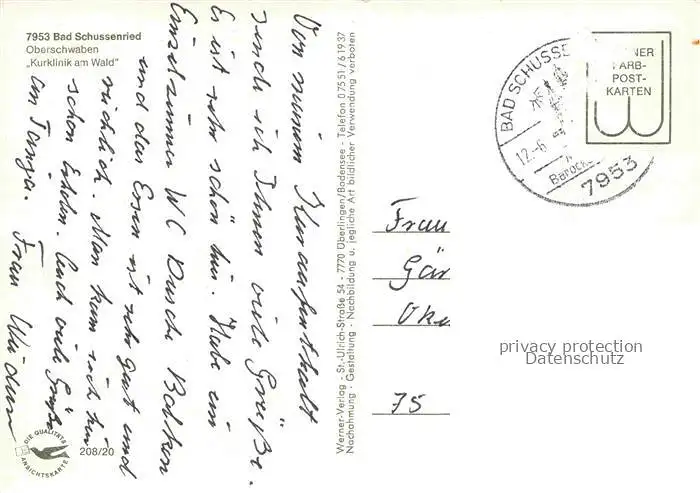 7953 Bad Schussenried
Oberschwaben
„Kurklinik am Wald"
Von meinem Kuraufenthalt
sende ich Ihnen viele Grüße.
Es ist sehr schön hier. Habe ein
Einzelzimmer WC Dusche Balkon
und das Essen ist sehr gut und
reichlich. Man kann sich hier
schon Erholen. Auch viele Grüße
an Tanja. Frau
DIE QUALITÄTS
ANSICHTSKARTE
208/20
Werner-Verlag - St.-Ulrich-Straße 54 - 7770 Überlingen/Bodensee - Telefon 07551/61937
Nachahmung - Gestaltung - Nachbildung u. jegliche Art bildlicher Verwendung verboten
BAD SCHUSSE
12.-6.
Barock
7953
NER
FARB-
POST-
KARTEN
Frau
Gär
Oke
75
privacy protection
Datenschutz